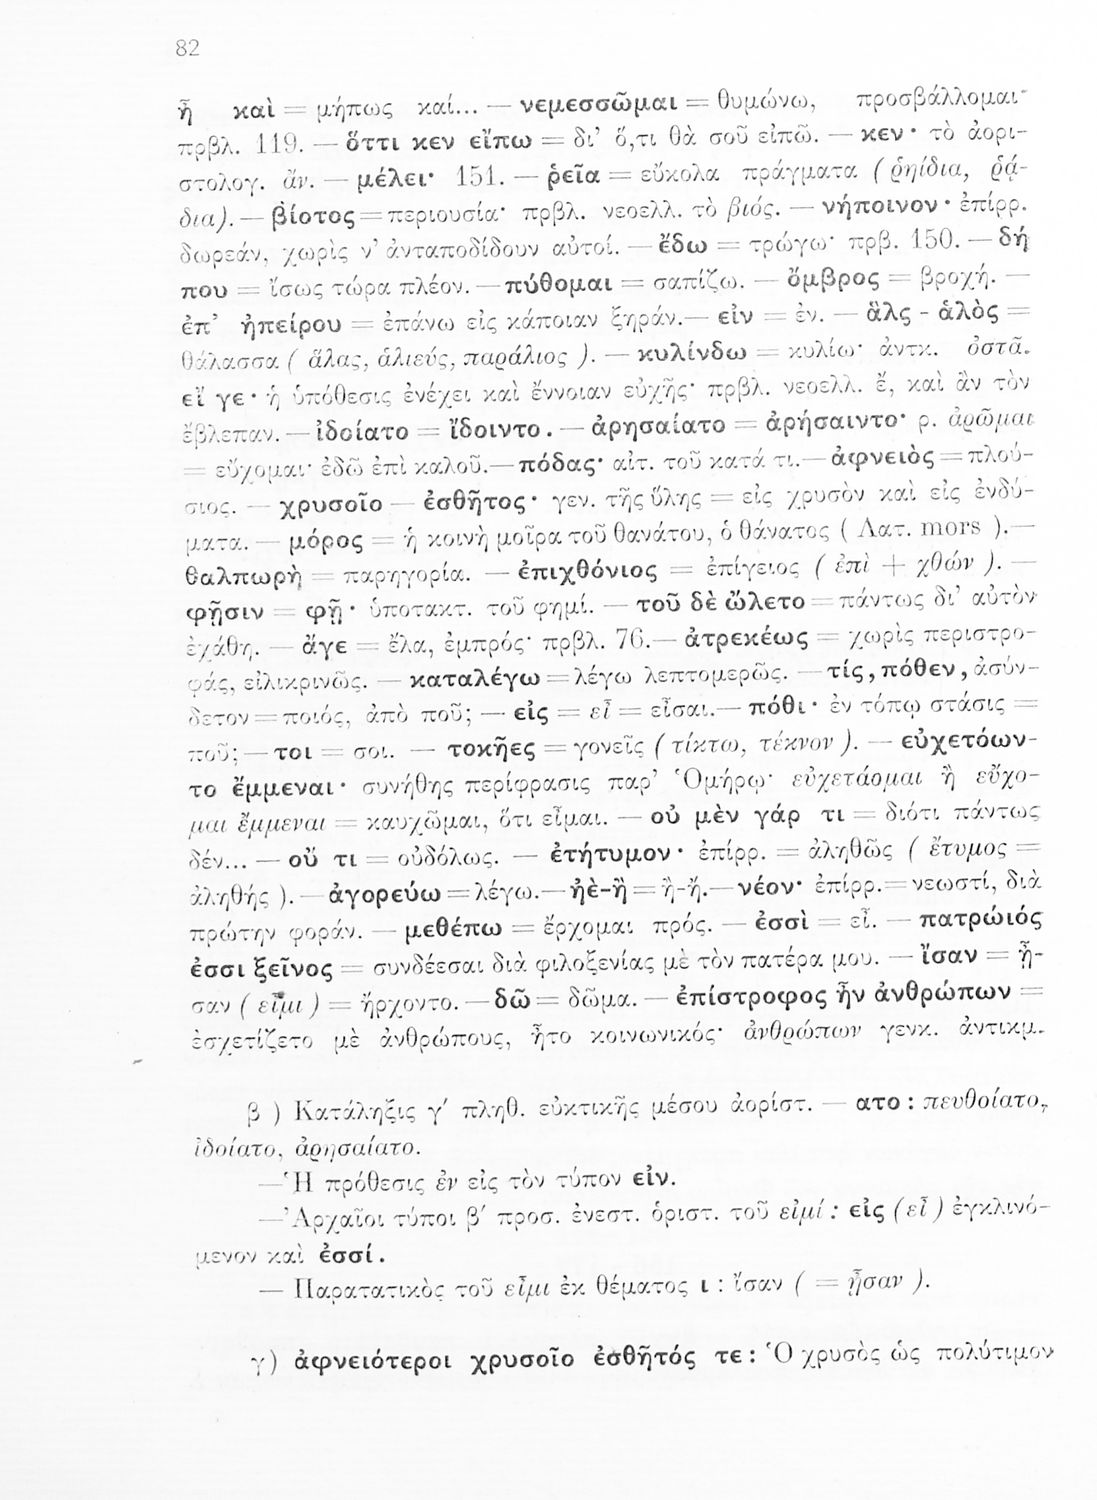 82
ἦ καὶ = μήπως καί... — νεμεσσῶμαι = θυμώνω, προσβάλλομαι·
πρβλ. 119. — ὅττι κεν εἴπω = δι’ ὅ,τι θὰ σοῦ εἰπῶ. — κεν· τὸ ἀορι-
στολογ. ἄν. — μέλει· 151. — ῥεῖα = εὔκολα πράγματα ( ῥηίδια, ῥᾴ-
δια). — βίοτος = περιουσία· πρβλ. νεοελλ. τὸ βιός. — νήποινον· ἐπίρρ.
δωρεάν, χωρὶς ν’ ἀνταποδίδουν αὐτοί. — ἔδω = τρώγω· πρβ. 150. — δή
που = ἴσως τώρα πλέον. — πύθομαι = σαπίζω. — ὄμβρος = βροχή. —
ἐπ’ ἠπείρου = ἐπάνω εἰς κάποιαν ξηράν.— εἰν = ἐν. — ἅλς - ἁλὸς =
θάλασσα ( ἅλας, ἁλιεύς, παράλιος ). — κυλίνδω = κυλίω· ἀντκ. ὀστᾶ.
εἴ γε· ἡ ὑπόθεσις ἐνέχει καὶ ἔννοιαν εὐχῆς· πρβλ. νεοελλ. ἔ, καὶ ἂν τὸν
ἔβλεπαν. — ἰδοίατο = ἴδοιντο. — ἀρησαίατο = ἀρήσαιντο· ρ. ἀρῶμαι
= εὔχομαι· ἐδῶ ἐπὶ καλοῦ.— πόδας· αἰτ. τοῦ κατά τι.— ἀφνειὸς = πλού-
σιος. — χρυσοῖο — ἐσθῆτος· γεν. τῆς ὕλης = εἰς χρυσὸν καὶ εἰς ἐνδύ-
ματα. — μόρος = ἡ κοινὴ μοῖρα τοῦ θανάτου, ὁ θάνατος ( Λατ. mors ).—
θαλπωρὴ = παρηγορία. — ἐπιχθόνιος = ἐπίγειος ( ἐπὶ + χθών ). —
φῇσιν = φῇ· ὑποτακτ. τοῦ φημί. — τοῦ δὲ ὤλετο = πάντως δι’ αὐτὸν
ἐχάθη. — ἄγε = ἔλα, ἐμπρός· πρβλ. 76.— ἀτρεκέως = χωρὶς περιστρο-
φάς, εἰλικρινῶς. — καταλέγω = λέγω λεπτομερῶς. — τίς, πόθεν, ἀσύν-
δετον = ποιός, ἀπὸ ποῦ; — εἰς = εἶ = εἶσαι.— πόθι· ἐν τόπῳ στάσις =
ποῦ; — τοι = σοι. — τοκῆες = γονεῖς ( τίκτω, τέκνον ). — εὐχετόων-
το ἔμμεναι· συνήθης περίφρασις παρ’ Ὁμήρῳ· εὐχετάομαι ἢ εὔχο-
μαι ἔμμεναι = καυχῶμαι, ὅτι εἶμαι. — οὐ μὲν γάρ τι = διότι πάντως
δέν... — οὔ τι = οὐδόλως. — ἐτήτυμον· ἐπίρρ. = ἀληθῶς ( ἔτυμος =
ἀληθής ). — ἀγορεύω = λέγω.— ἠὲ-ἢ = ἢ-ἤ.— νέον· ἐπίρρ.= νεωστί, διὰ
πρώτην φοράν. — μεθέπω = ἔρχομαι πρός. — ἐσσὶ = εἶ. — πατρώιός
ἐσσι ξεῖνος = συνδέεσαι διὰ φιλοξενίας μὲ τὸν πατέρα μου. — ἴσαν = ᾖ-
σαν ( εἶμι ) = ἤρχοντο. — δῶ = δῶμα. — ἐπίστροφος ἦν ἀνθρώπων =
ἐσχετίζετο μὲ ἀνθρώπους, ἦτο κοινωνικός· ἀνθρώπων γενκ. ἀντικμ.
β ) Κατάληξις γ΄ πληθ. εὐκτικῆς μέσου ἀορίστ. — ατο : πευθοίατο,
ἰδοίατο, ἀρησαίατο.
—Ἡ πρόθεσις ἐν εἰς τὸν τύπον εἰν.
—Ἀρχαῖοι τύποι β΄ προσ. ἐνεστ. ὁριστ. τοῦ εἰμί : εἰς (εἶ ) ἐγκλινό-
μενον καὶ ἐσσί.
— Παρατατικὸς τοῦ εἶμι ἐκ θέματος ι : ἴσαν ( = ᾖσαν ).
γ) ἀφνειότεροι χρυσοῖο ἐσθῆτός τε : Ὁ χρυσὸς ὡς πολύτιμον